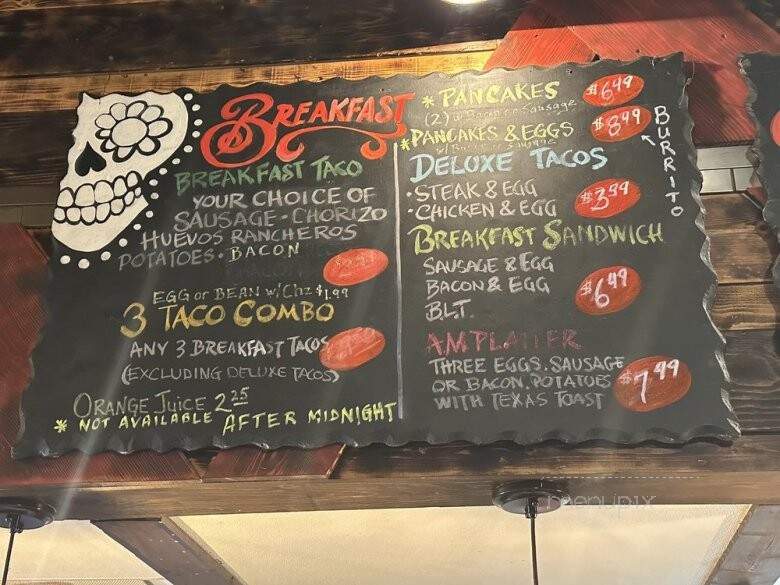 BREAKFAST
BREAKFAST TACO
YOUR CHOICE OF
SAUSAGE · CHORIZO
HUEVOS RANCHEROS
POTATOES · BACON
EGG or BEAN w/Chz $1.99
3 TACO COMBO
ANY 3 BREAKFAST TACOS
(EXCLUDING DELUXE TACOS)
ORANGE JUICE 2.25
* NOT AVAILABLE AFTER MIDNIGHT
* PANCAKES $6.49
(2) w/ Bacon or Sausage
* PANCAKES & EGGS $8.99
w/ Bacon or Sausage
BURRITO
DELUXE TACOS
· STEAK & EGG
· CHICKEN & EGG $3.99
BREAKFAST SANDWICH
SAUSAGE & EGG
BACON & EGG $6.49
B.L.T.
A.M. PLATTER
THREE EGGS, SAUSAGE
OR BACON, POTATOES $7.99
WITH TEXAS TOAST
menupix